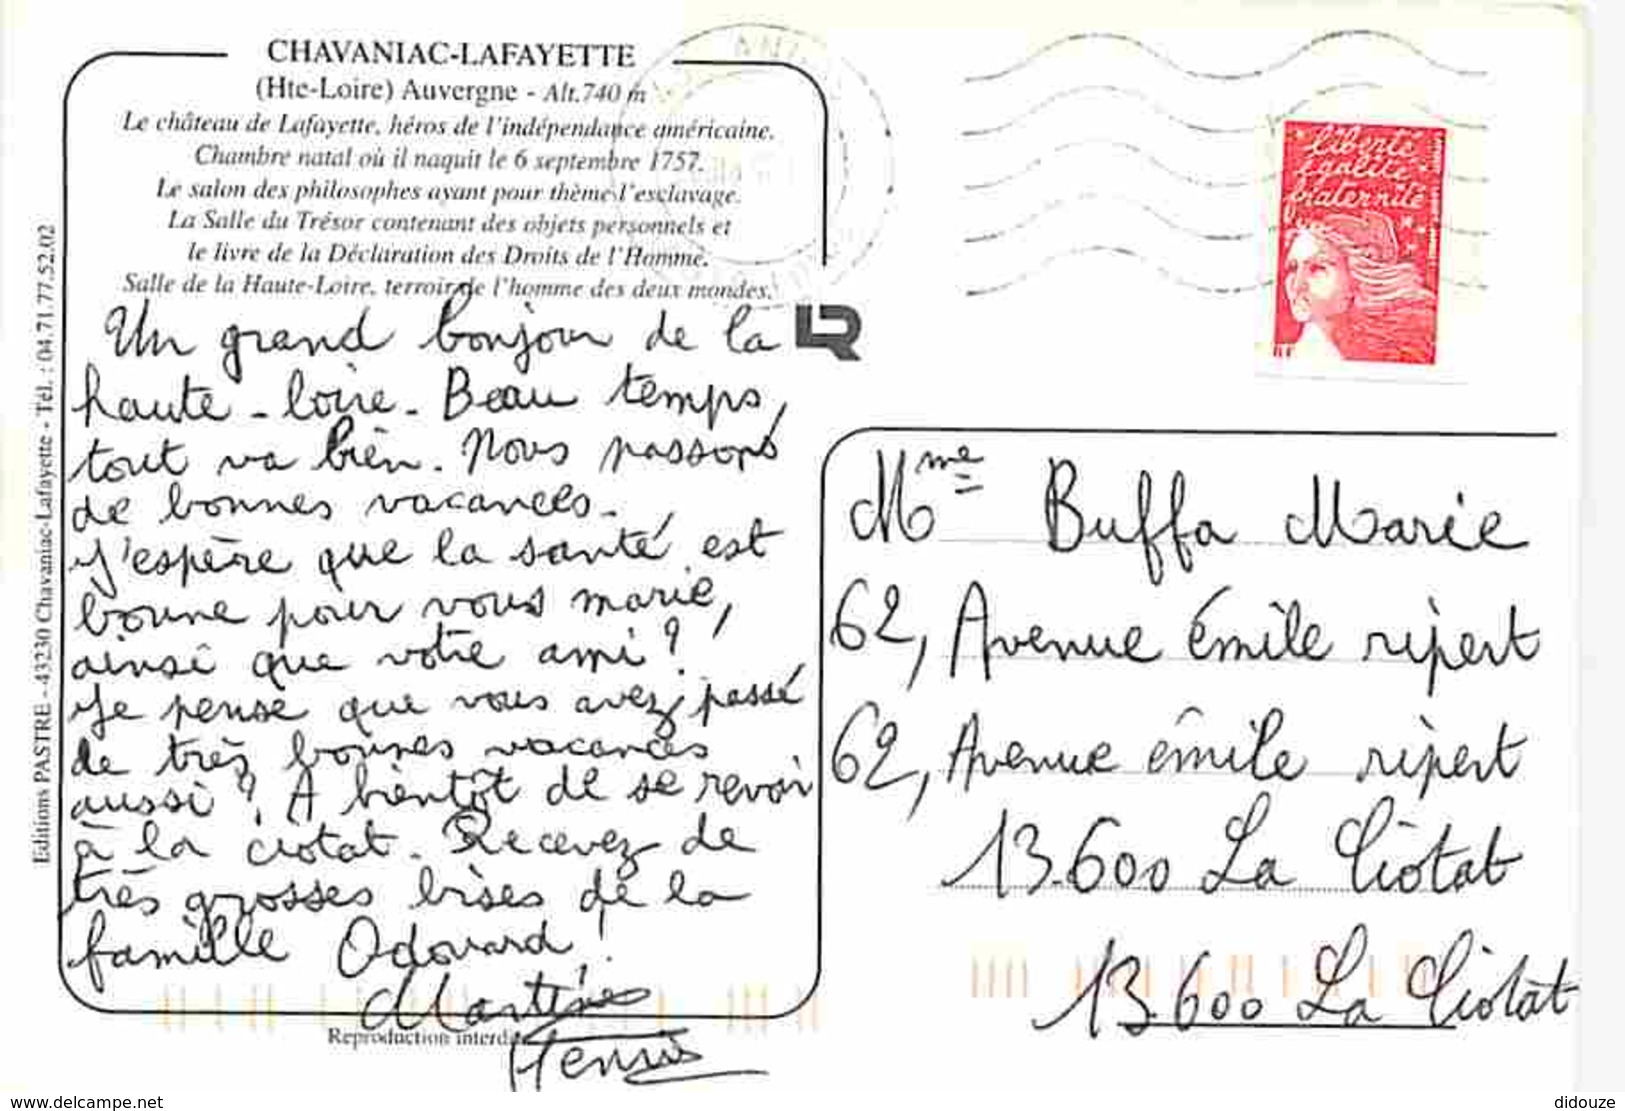 CHAVANIAC-LAFAYETTE
(Hte-Loire) Auvergne - Alt. 740 m
Le château de Lafayette, héros de l'indépendance américaine.
Chambre natal où il naquit le 6 septembre 1757.
Le salon des philosophes ayant pour thème l'esclavage.
La Salle du Trésor contenant des objets personnels et
le livre de la Déclaration des Droits de l'Homme.
Salle de la Haute-Loire, terroir de l'homme des deux mondes.
Editions PASTRE - 43230 Chavaniac-Lafayette - Tél. : 04.71.77.52.02
Un grand bonjour de la
haute - loire. Beau temps,
tout va bien. Nous passons
de bonnes vacances.
J'espère que la santé est
bonne pour vous marie,
ainsi que votre ami ?
Je pense que vous avez passé
de très bonnes vacances
aussi ? A bientôt de se revoir
à la ciotat. Recevez de
très grosses bises de la
famille Odouard !
Martine
Henri
Reproduction interdite
LR
liberté
égalité
fraternité
RF
Mme Buffa Marie
62, Avenue émile ripert
62, Avenue émile ripert
13.600 La Ciotat
13.600 La Ciotat
www.delcampe.net
didouze